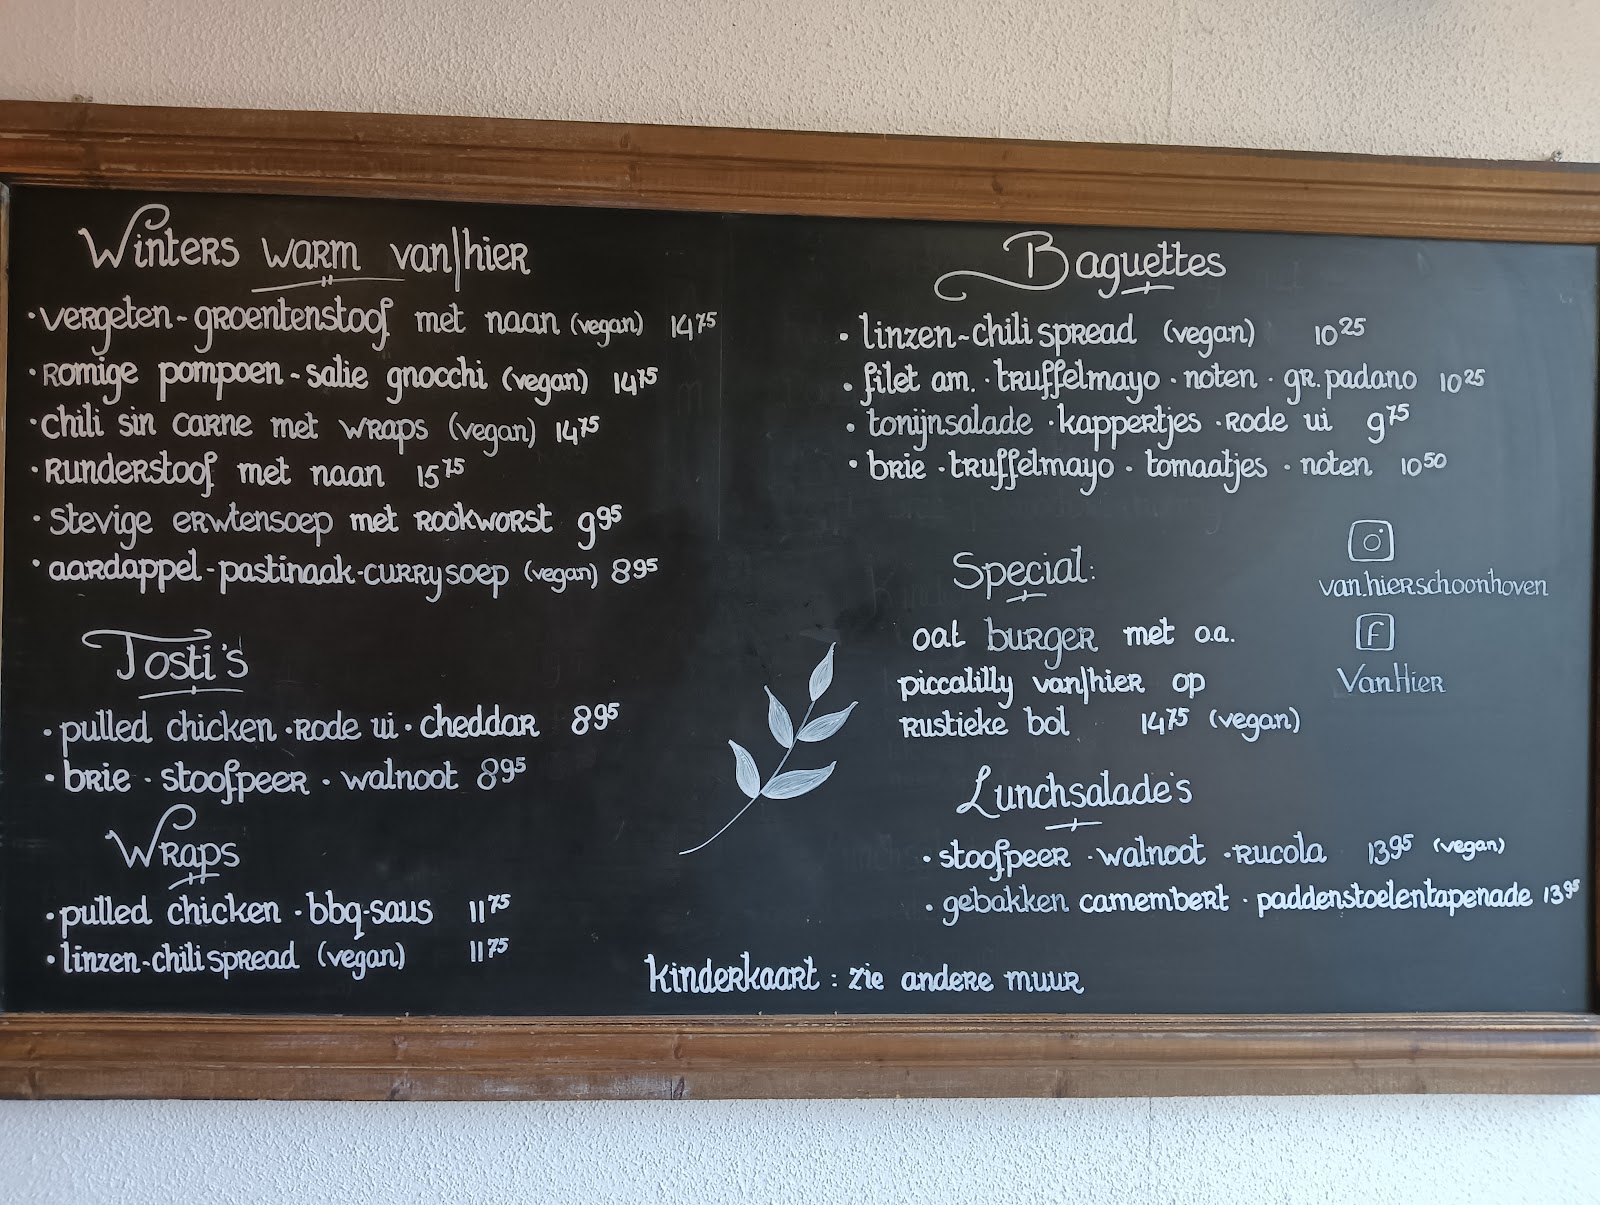 Winters warm van|hier
• vergeten - groentenstoof met naan (vegan) 14 75
• romige pompoen - salie gnocchi (vegan) 14 75
• chili sin carne met wraps (vegan) 14 75
• runderstoof met naan 15 75
• stevige erwtensoep met rookworst 9 95
• aardappel - pastinaak - curry soep (vegan) 8 95
Tosti's
• pulled chicken • rode ui • cheddar 8 95
• brie • stoofpeer • walnoot 8 95
Wraps
• pulled chicken • bbq-saus 11 75
• linzen - chili spread (vegan) 11 75
Baguettes
• linzen - chili spread (vegan) 10 25
• filet am. • truffelmayo • noten • gr. padano 10 25
• tonijnsalade • kappertjes • rode ui 9 75
• brie • truffelmayo • tomaatjes • noten 10 50
Special:
oat burger met o.a.
piccalilly van|hier op
rustieke bol 14 75 (vegan)
van.hierschoonhoven
f
VanHier
Lunchsalade's
• stoofpeer • walnoot • rucola 13 95 (vegan)
• gebakken camembert • paddenstoelentapenade 13 95
kinderkaart : zie andere muur